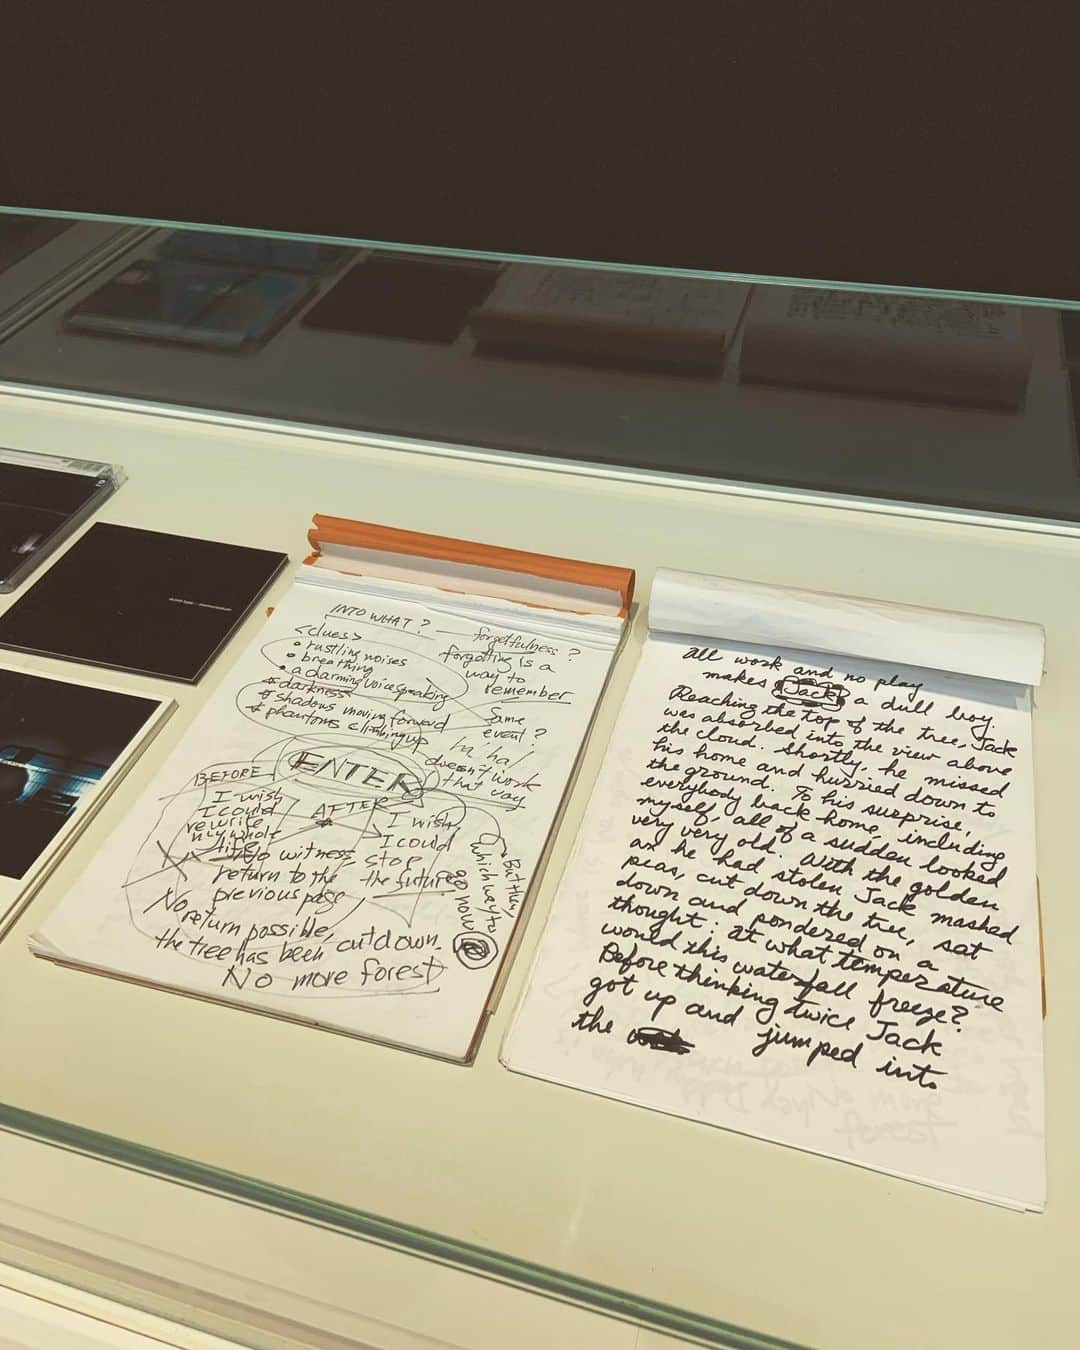 INTO WHAT?
<clues>
• rustling noises
• breathing
• a charming voice speaking
* darkness
* shadows moving forward
* phantoms climbing up
forgetfulness?
forgetting is a
way to
remember
Same
event?
ha, ha,
doesn't work
this way
ENTER
BEFORE
I wish
I could
rewrite
my whole
life
AFTER
I wish
I could
stop
the future
No witness,
return to the
previous page
But then,
which way to
go now?
No
return possible,
the tree has been cut down.
No more forest
All work and no play
makes Jack a dull boy.
Reaching the top of the tree, Jack
was absorbed into the view above
the cloud. Shortly, he missed
his home and hurried down to
the ground. To his surprise,
everybody back home, including
myself, all of a sudden looked
very very old. With the golden
peas, cut down the tree, sat
an he had stolen Jack mashed
down and pondered on a
thought: at what temperature
would this waterfall freeze?
Before thinking twice Jack
got up and jumped into
the